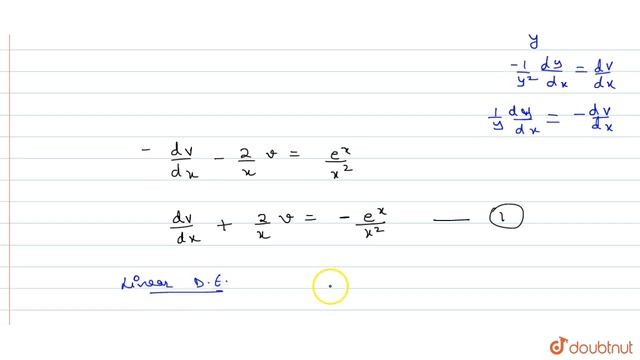 y
-1/y² dy/dx = dv/dx
1/y dy/dx = - dv/dx
- dv/dx - 2/x v = eˣ/x²
dv/dx + 2/x v = - eˣ/x² —— 1
Linear D.E.
doubtnut